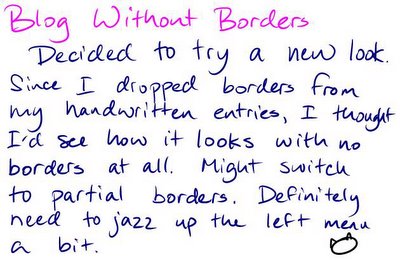 Blog Without Borders
Decided to try a new look.
Since I dropped borders from
my handwritten entries, I thought
I'd see how it looks with no
borders at all. Might switch
to partial borders. Definitely
need to jazz up the left menu
a bit.